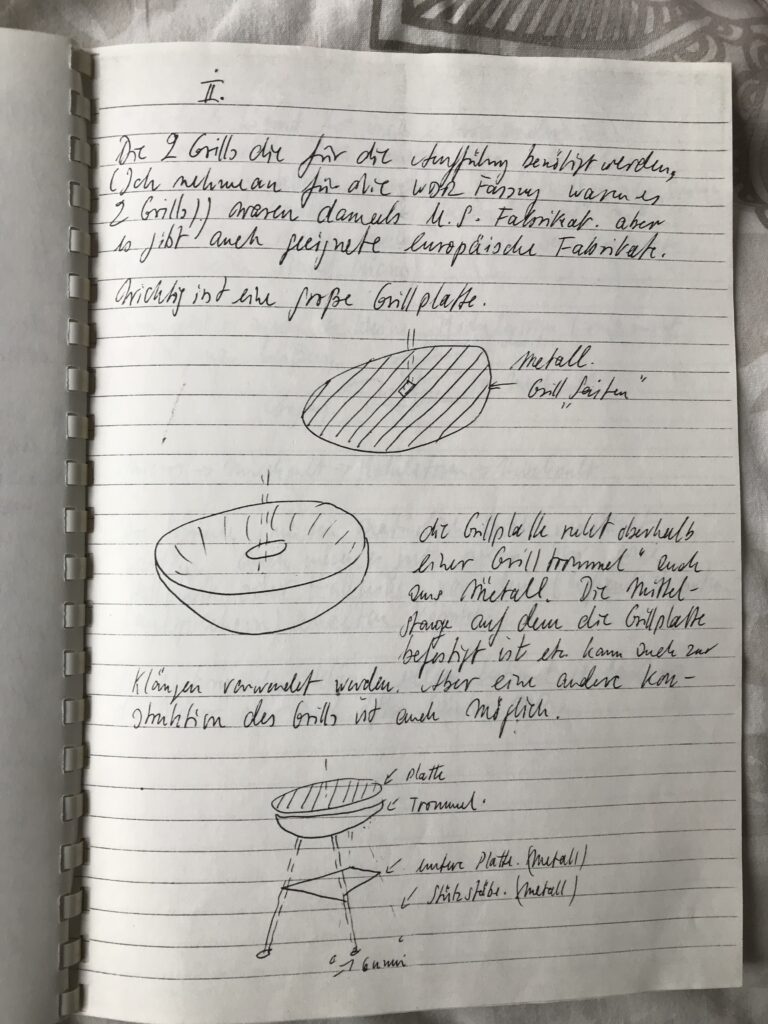 II.
Die 2 Grills die für die Aufführung benötigt werden,
(Ich nehme an für die WDR Fassung waren es
2 Grills)) waren damals U.S. Fabrikat. aber
es gibt auch geeignete europäische Fabrikate.
Wichtig ist eine große Grillplatte.
Metall.
Grill „Saiten“
die Grillplatte ruht oberhalb
einer Grilltrommel“ auch
aus Metall. Die Mittel-
stange auf dem die Grillplatte
befestigt ist etc. kann auch zur
Klängen verwendet werden. Aber eine andere Kon-
struktion des Grills ist auch möglich.
Platte
Trommel.
untere Platte. (Metall)
Stützstäbe. (Metall)
Gummi